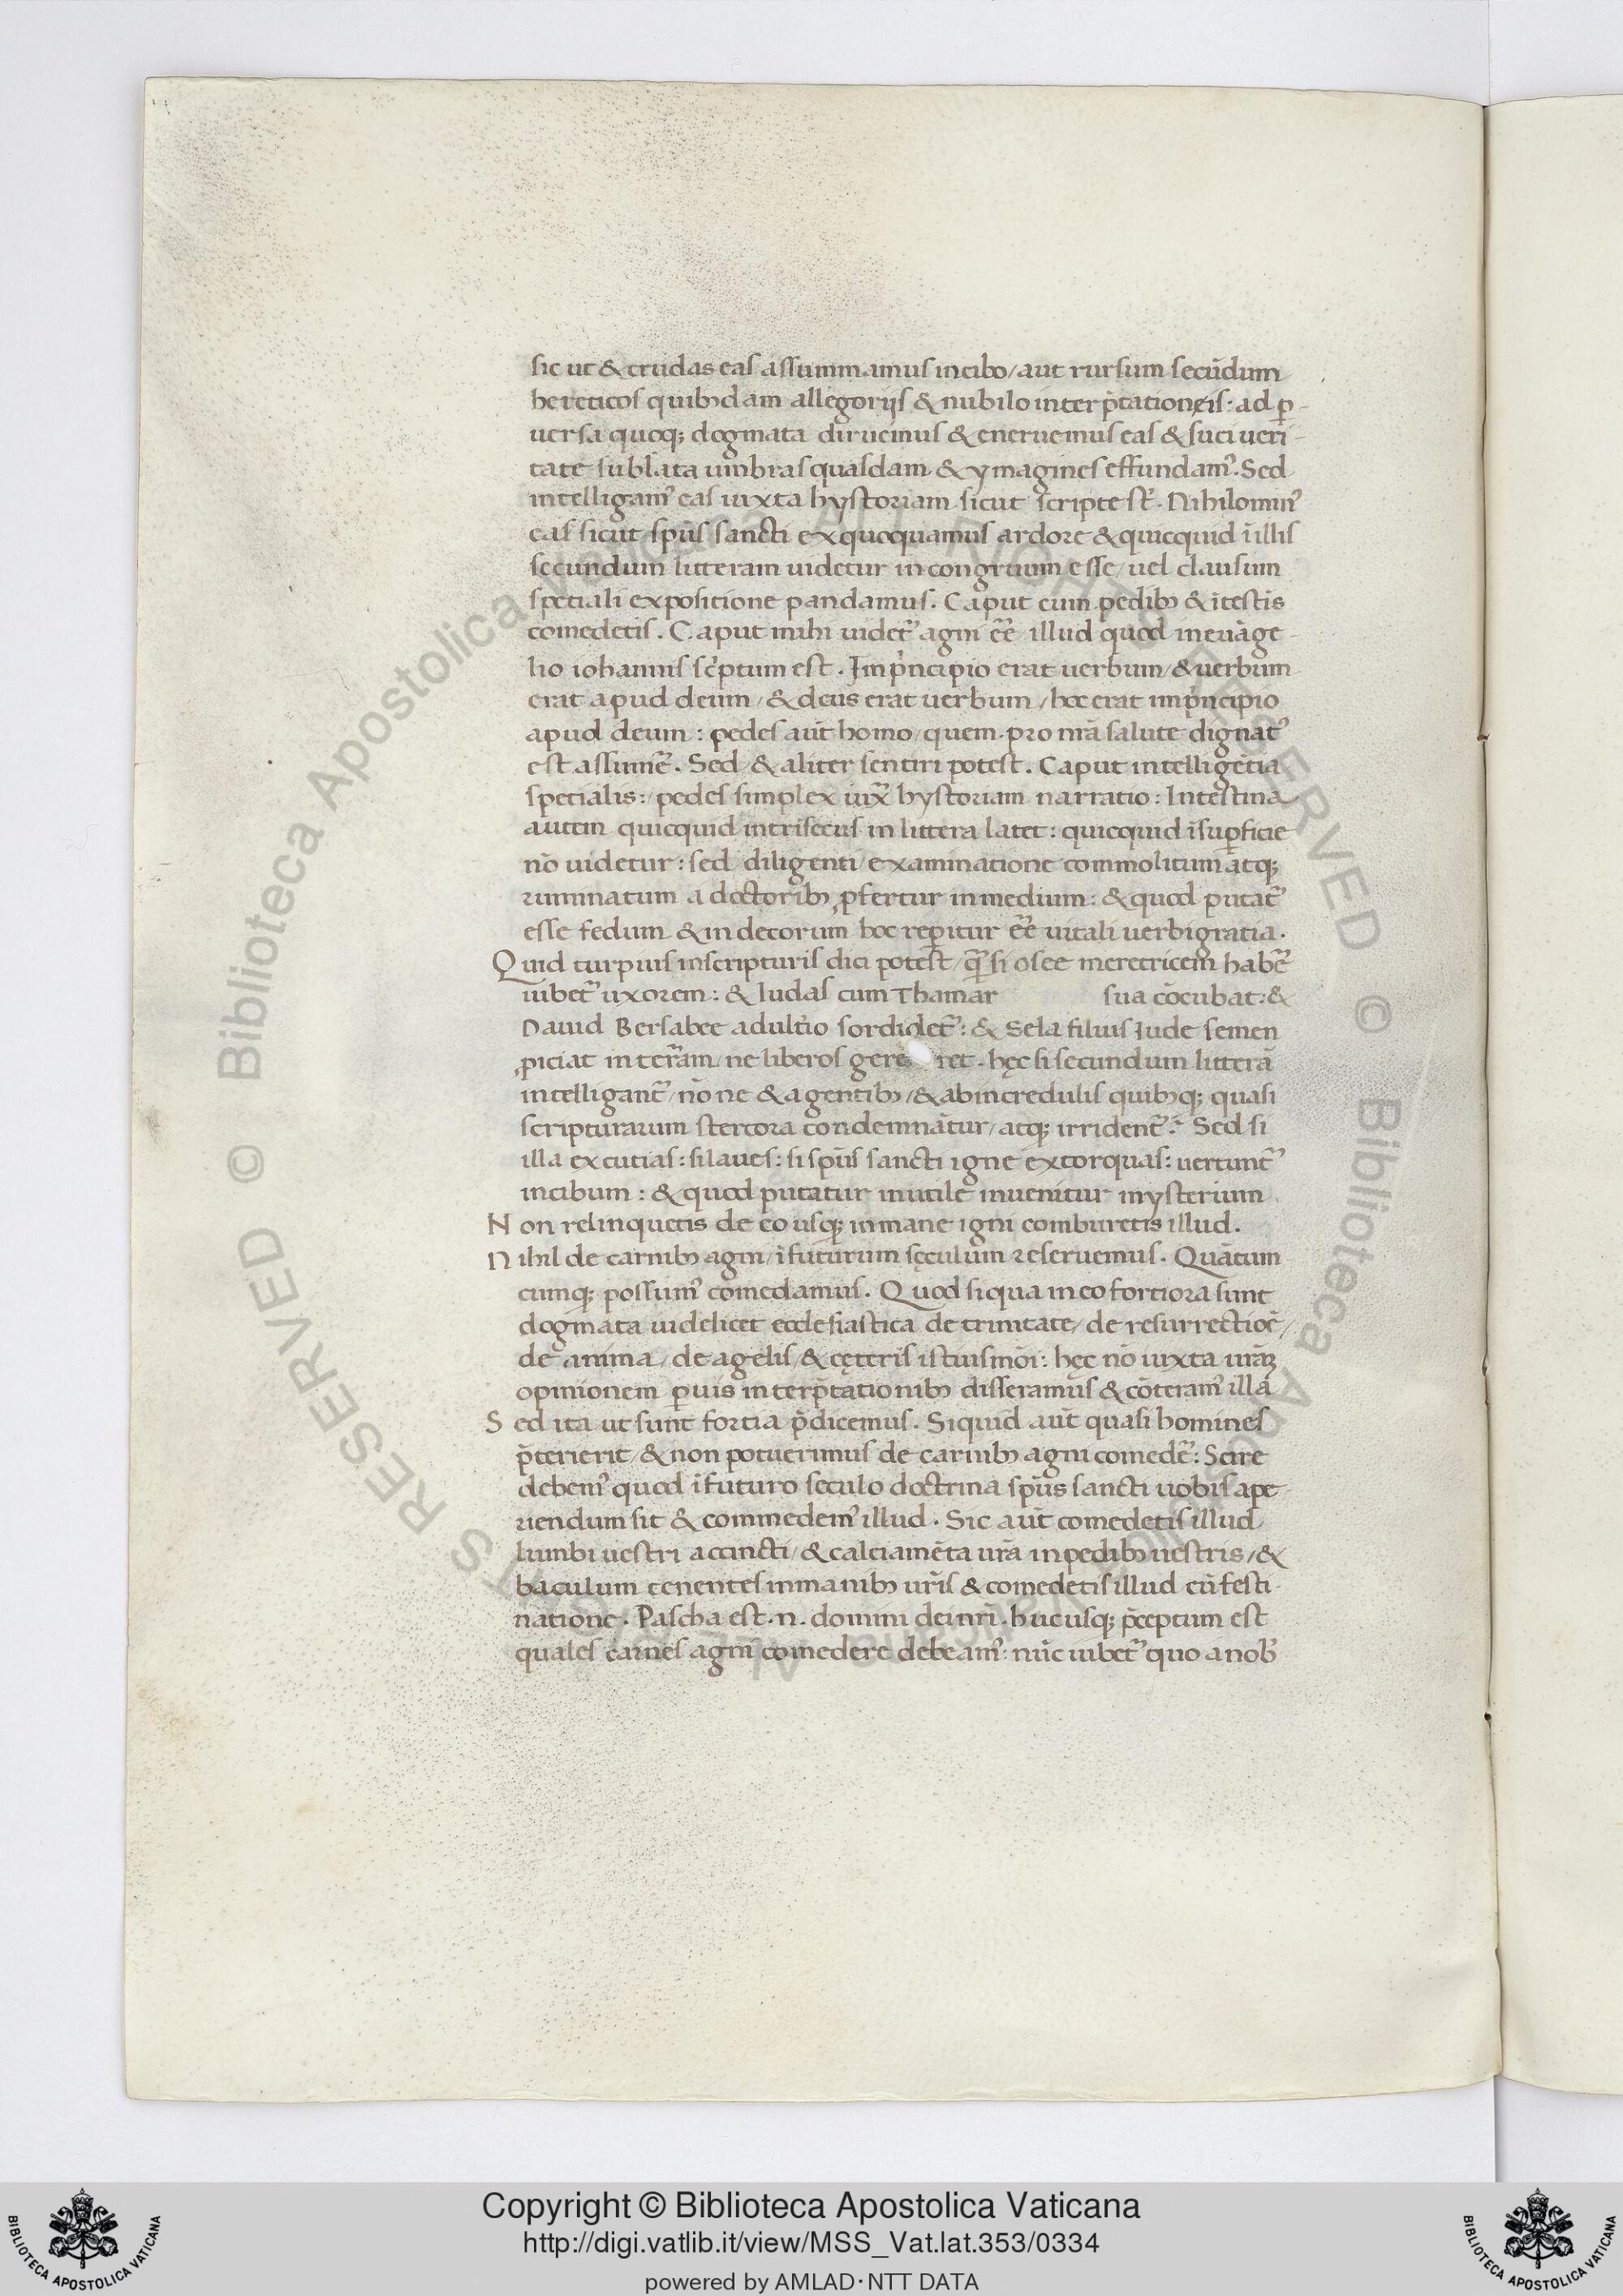 sic ut & crudas eas assummamus incibo/ aut rursum secūdum
hereticos quibꝰdam allegorijs & nubilo interp̄tationęis: ad ꝑ-
uersa quoq; dogmata diruemus & eneruemus eas & suci ueri-
tate sublata umbras quasdam & ymagines effundamꝰ. Sed
intelligamꝰ eas iuxta hystoriam sicut scripte st̄. Nihilominꝰ
eas sicut sp̄us sancti exquoquamus ardore & quicquid ī illis
secundum litteram uidetur incongruum esse/ uel clausum
spetiali expositione pandamus. Caput cum pedibꝰ & ītestis
comedetis. Caput mihi uidet᷑ agni eē̄/ illud quod ineuāge-
lio iohannis sc̄ptum est. Imp̄ncipio erat uerbum/ & uerbum
erat apud deum/ & deus erat uerbum/ hoc erat imp̄ncipio
apud deum: pedes aūt homo/ quem pro nr̄a salute dignatꝰ
est assumē̄. Sed & aliter sentiri potest. Caput intelligētia
spetialis:/ pedes simplex iux̄ hystoriam narratio: Intestina
autem quicquid intrisecus in littera latet: quicquid ī suꝑficie
nō uidetur: sed diligenti examinatione commolitum atq;
ruminatum a doctoribꝰ ꝓfertur inmedium: & quod putat᷑
esse fedum & indecorum hoc reꝑitur eē̄ uitali uerbigratia.
Quid turpius inscripturis dici potest/ q̄ꝫ si osee meretricem habē̄
iubet᷑ uxorem: & Iudas cum Thamar sua cōcubat: &
Dauid Bersabee adult̄io sordidet᷑: & Sela filius Iude semen
ꝓiciat in terram/ ne liberos gere ret. hęc si secundum litterā
intelligant᷑/ nō ne & agentibꝰ/ & abincredulis quibꝰq; quasi
scripturarum stercora condemnātur/ atq; irrident᷑? Sed si
illa excutias: si laues: si sp̄us sancti igne extorquas: uertunt᷑
incibum: & quod putatur inutile inuenitur mysterium
Non relinquetis de eo usq; inmane igni comburetis illud.
Nihil de carnibꝰ agni/ ī futurum sęculum reseruemus. Quātum
cumq; possumꝰ comedamus. Quod siqua in eo fortiora sunt
dogmata uidelicet ecclesiastica de trinitate/ de resurrectiōē/
de anima/ de āgelis/ & cęteris istiusmōi: hęc nō iuxta ur̄aꝫ
opinionem ꝑuis interp̄tationibꝰ disseramus & cōteramꝰ illa
Sed ita ut sunt fortia p̄dicemus. Siquid aūt quasi homines
p̄terierit/ & non potuerimus de carnibꝰ agni comedē̄: Scire
debemꝰ quod ī futuro seculo doctrina sp̄us sancti uobis ape-
riendum sit & commedemꝰ illud. Sic aūt comedetis illud
lumbi uestri accincti/ & calciamēta ur̄a inpedibꝰ uestris/ &
baculum tenentes inmanibꝰ ur̄is & comedetis illud cū festi-
natione. Pascha est .n. domini dei nr̄i. hucusq; p̄ceptum est
quales carnes agni comedere debeamꝰ: nūc iubet᷑ quo a nob̄